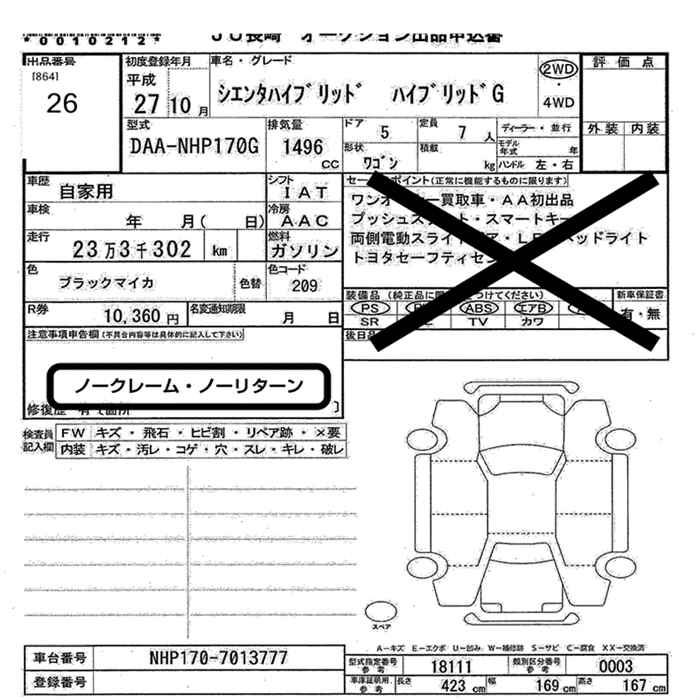 *0010212*
ＪＵ長崎 オークション出品申込書
出品番号
[864]
26
初度登録年月
平成
27 10 月
車名・グレード
シエンタハイブリッド ハイブリッドG
2WD
・
4WD
評価点
外装 内装
型式
DAA-NHP170G
排気量
1496
CC
ドア
5
定員
7 人
形状
ワゴン
積載
kg
ディーラー・並行
モデル年式 年
ハンドル 左・右
車歴
自家用
シフト
IAT
車検
年 月( 日)
冷房
AAC
走行
23万3千302 km
燃料
ガソリン
色
ブラックマイカ
色替
色コード
209
R券
10,360 円
名変通知期限
月 日
セールスポイント(正常に機能するものに限ります)
ワンオーナー買取車・AA初出品
プッシュスタート・スマートキー
両側電動スライドドア・LEDヘッドライト
トヨタセーフティセンス
装備品(純正品に限り○をつけてください)
PS ABS エアB
SR TV カワ
新車保証書
有・無
後日品
注意事項申告欄(不具合内容等は具体的に記入して下さい)
ノークレーム・ノーリターン
修復歴 有 て箇所 ]
検査員記入欄
FW キズ・飛石・ヒビ割・リペア跡・×要
内装 キズ・汚レ・コゲ・穴・スレ・キレ・破レ
スペア
A-キズ E-エクボ U-凹み W-補修跡 S-サビ C-腐食 XX-交換済
車台番号
NHP170-7013777
登録番号
型式指定番号参考
18111
類別区分番号参考
0003
車庫証明用参考
長さ 423 cm 幅 169 cm 高さ 167 cm